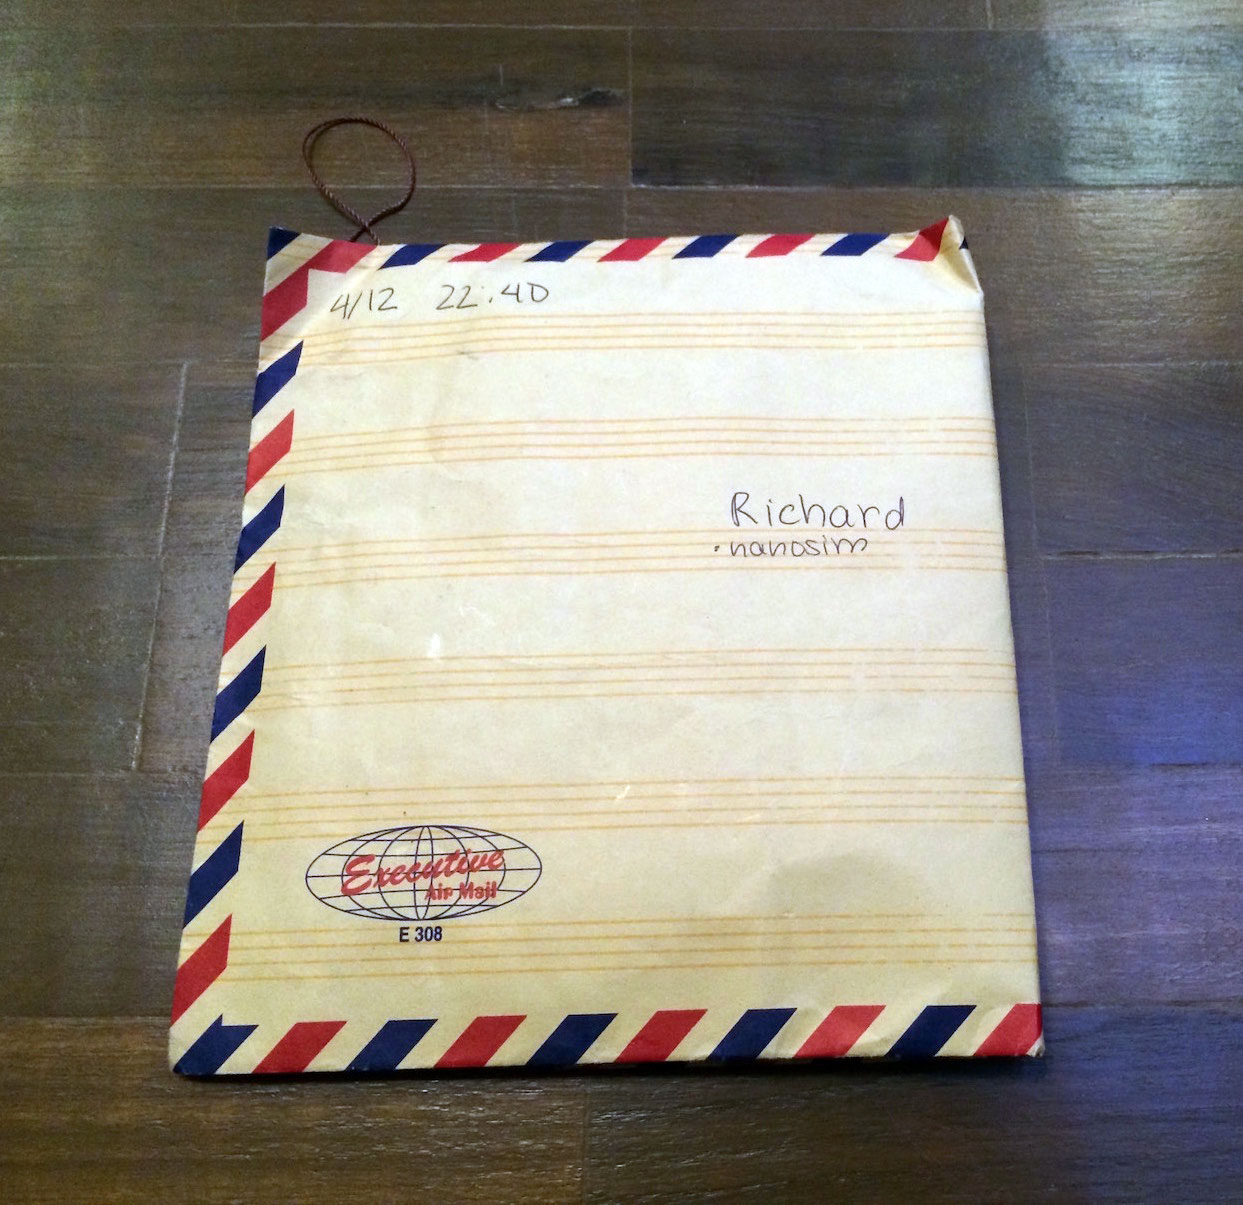 4/12 22:40
Richard
·nanosim
Executive
Air Mail
E 308